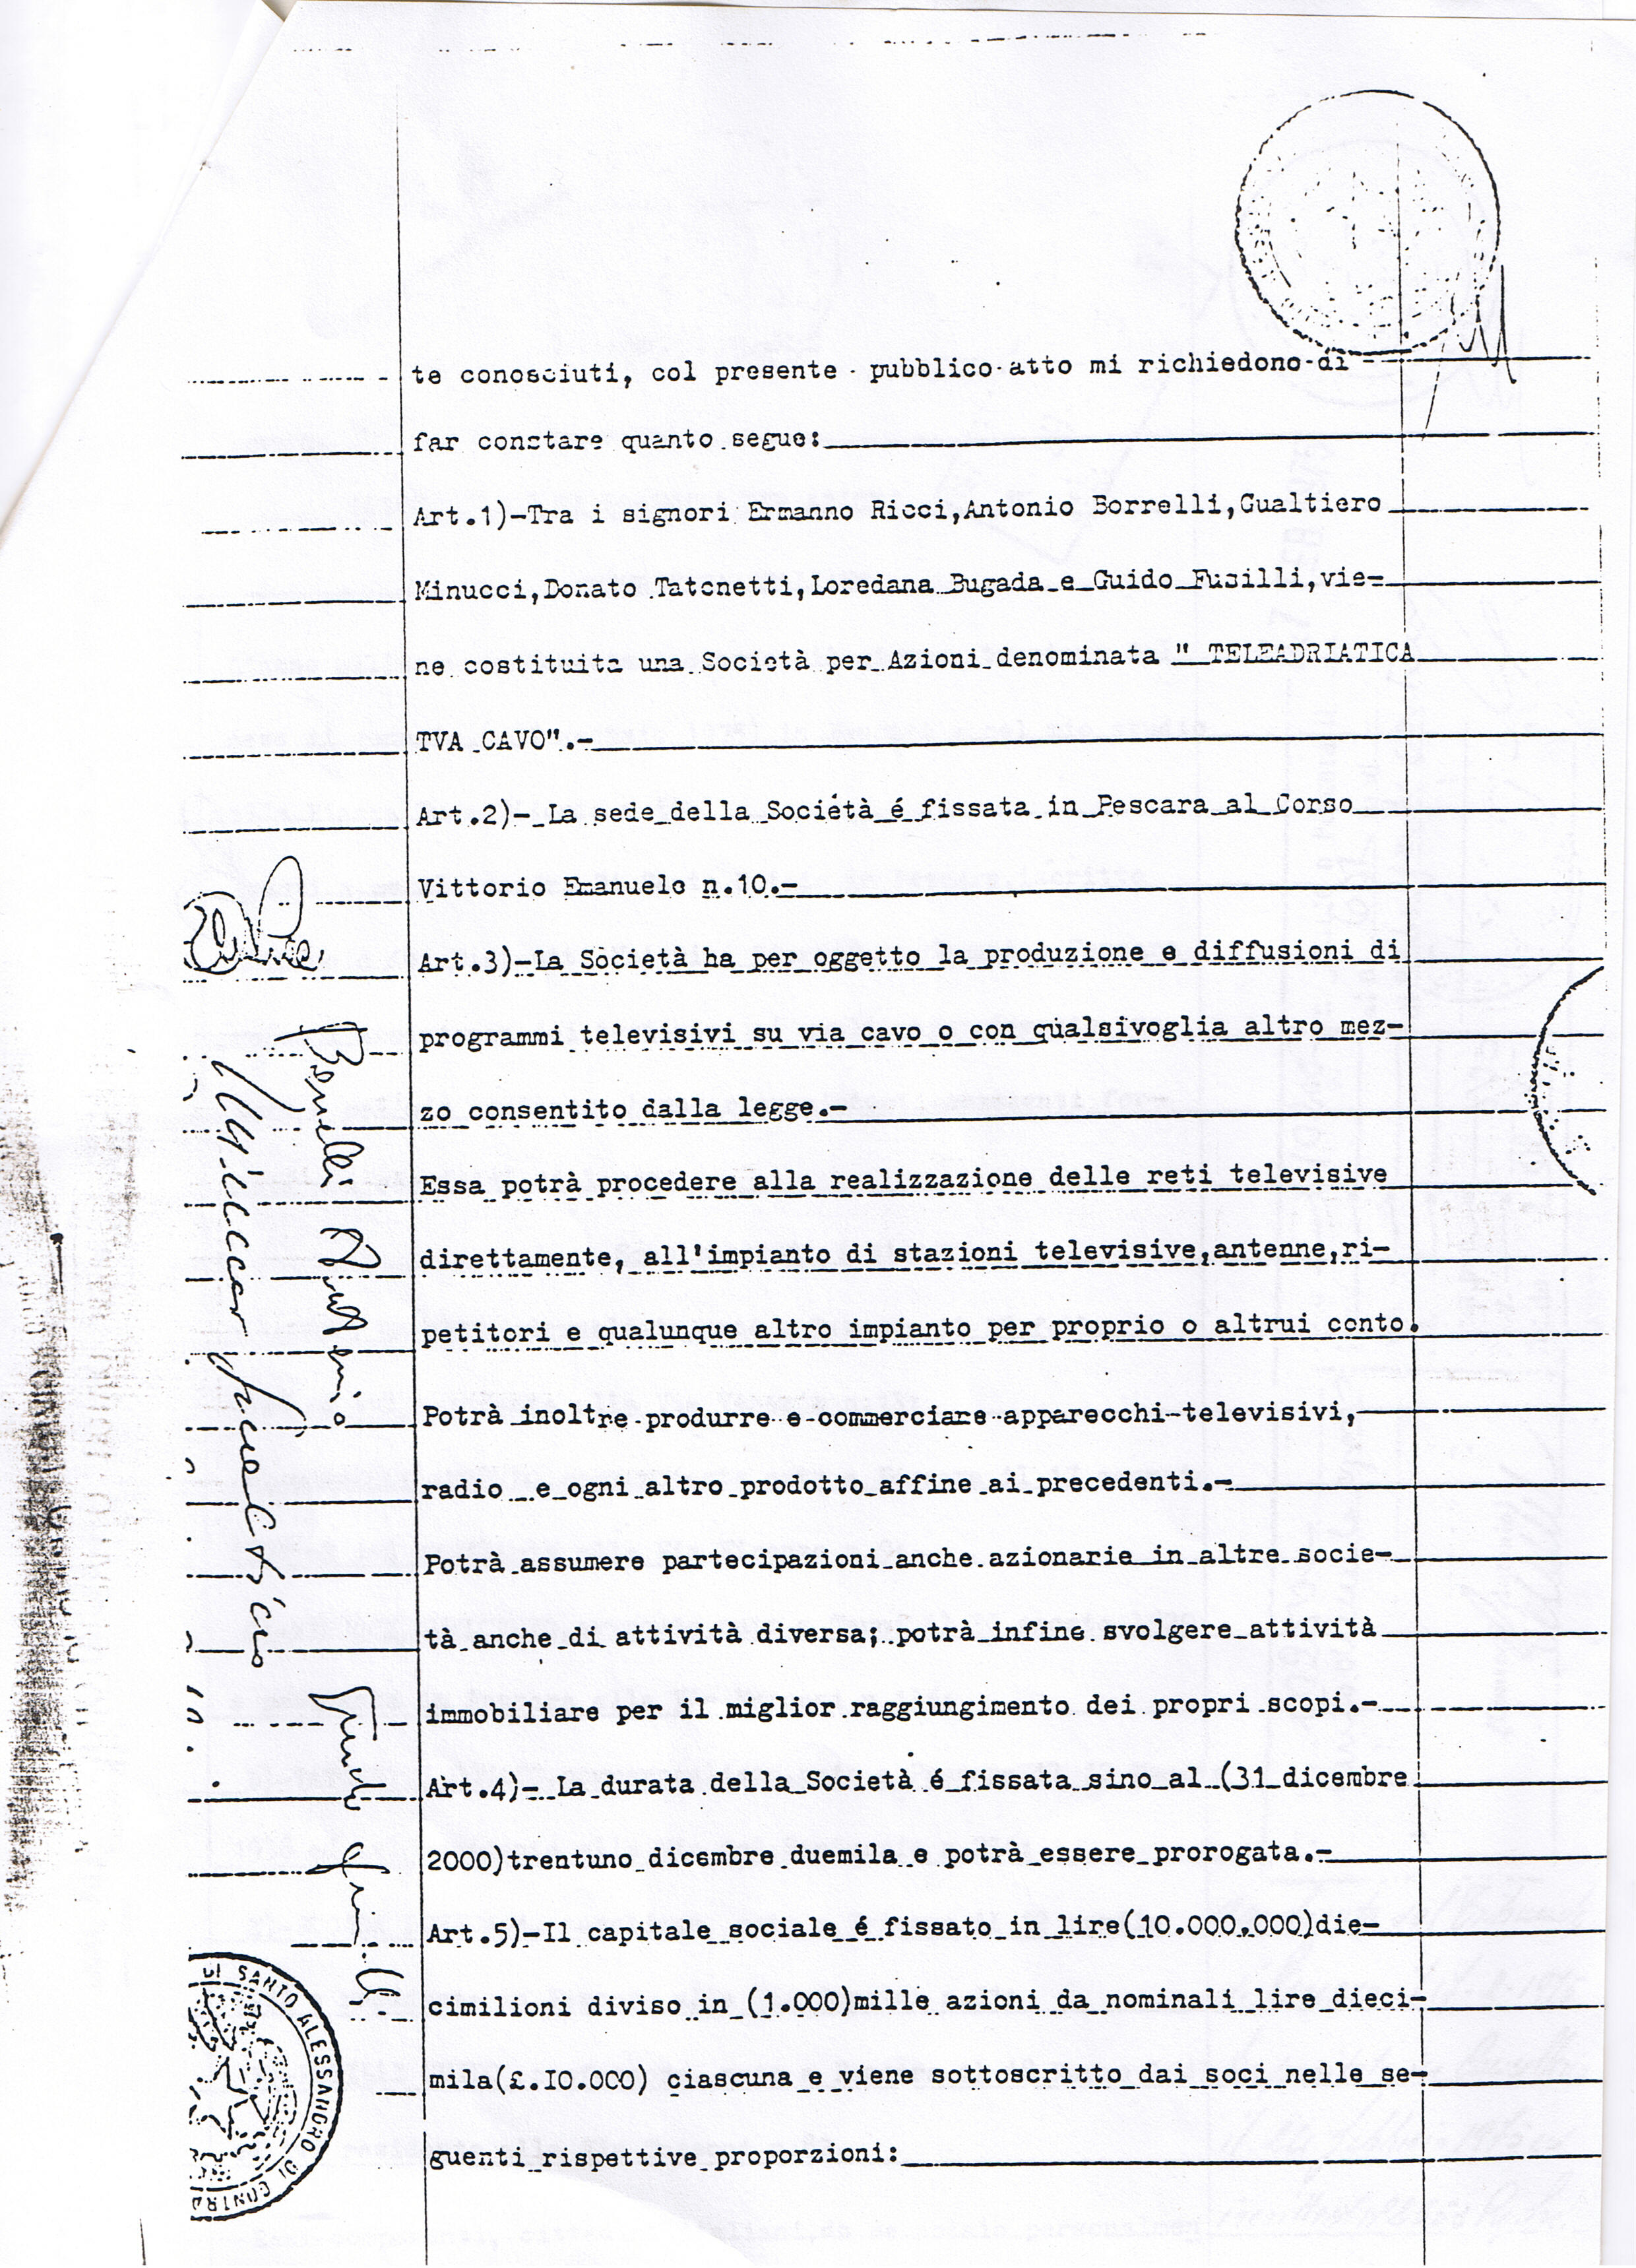 te conosciuti, col presente pubblico atto mi richiedono di
far constare quanto segue:
Art.1)-Tra i signori Ermanno Ricci,Antonio Borrelli,Gualtiero
Minucci,Donato Tatonetti,Loredana Bugada e Guido Fusilli,vie=
ne costituita una Società per Azioni denominata " TELEADRIATICA
TVA CAVO".-
Art.2)- La sede della Società é fissata in Pescara al Corso
Vittorio Emanuele n.10.-
Art.3)-La Società ha per oggetto la produzione e diffusioni di
programmi televisivi su via cavo o con qualsivoglia altro mez-
zo consentito dalla legge.-
Essa potrà procedere alla realizzazione delle reti televisive
direttamente, all'impianto di stazioni televisive,antenne,ri-
petitori e qualunque altro impianto per proprio o altrui conto.
Potrà inoltre produrre e commerciare apparecchi televisivi,
radio e ogni altro prodotto affine ai precedenti.-
Potrà assumere partecipazioni anche azionarie in altre socie-
tà anche di attività diversa; potrà infine svolgere attività
immobiliare per il miglior raggiungimento dei propri scopi.-
Art.4)- La durata della Società é fissata sino al (31 dicembre
2000)trentuno dicembre duemila e potrà essere prorogata.-
Art.5)-Il capitale sociale é fissato in lire(10.000.000)die=
cimilioni diviso in (1.000)mille azioni da nominali lire dieci-
mila(£.10.000) ciascuna e viene sottoscritto dai soci nelle se-
guenti rispettive proporzioni:
Borrelli Antonio
Minucci Gualtiero
Guido Fusilli
DI SANTO ALESSANDRO DI CONTRO